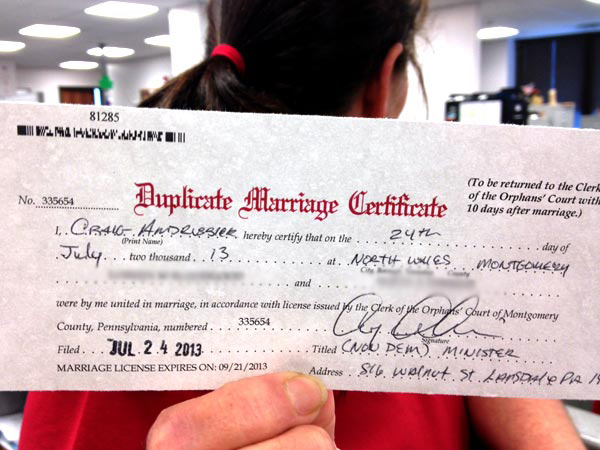 81285
No. 335654
Duplicate Marriage Certificate
(To be returned to the Clerk
of the Orphans' Court with
10 days after marriage.)
I, CRAIG ANDRUSSIER hereby certify that on the 24th day of
(Print Name)
July two thousand 13 at NORTH WALES MONTGOMERY
County
and
were by me united in marriage, in accordance with license issued by the Clerk of the Orphans' Court of Montgomery
County, Pennsylvania, numbered 335654
Signature
Filed JUL 24 2013 Titled (NON DEM) MINISTER
MARRIAGE LICENSE EXPIRES ON: 09/21/2013
Address 816 WALNUT St. LANSDALE PA 19